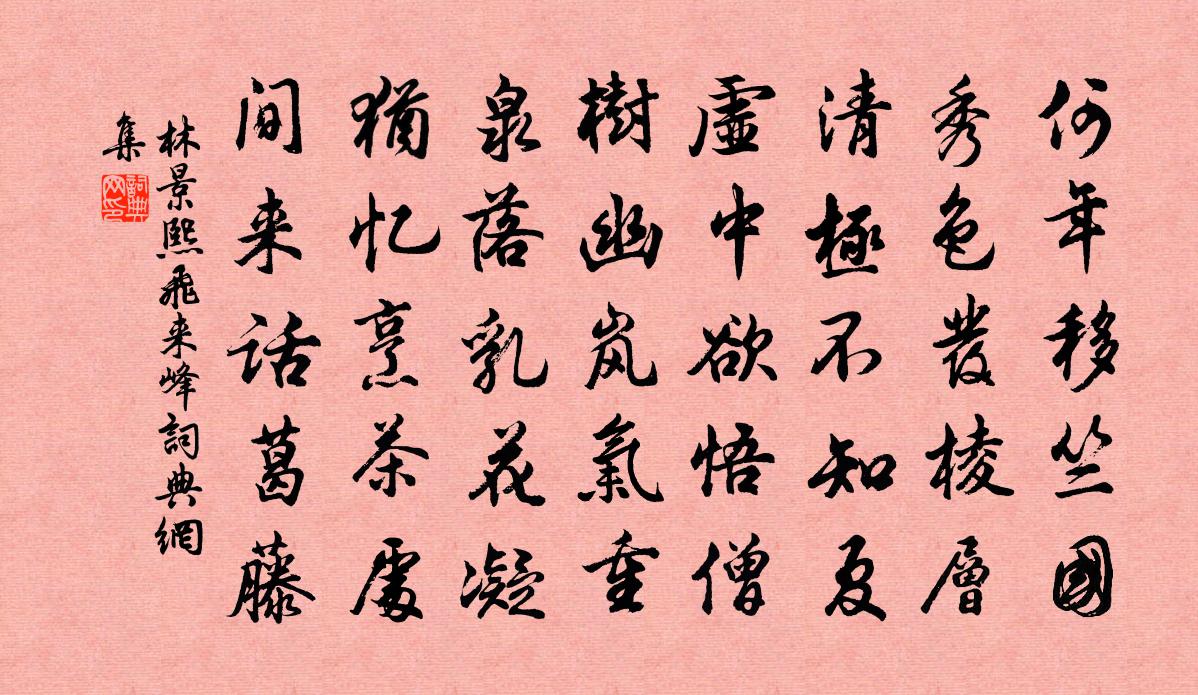 何年移竺國
秀色發棱層
清極不知夏
虛中欲悟僧
樹幽岚氣重
泉落乳花凝
猶忆烹茶處
间来話葛藤
林景熙飛来峰詞典網
集
詞典
网印